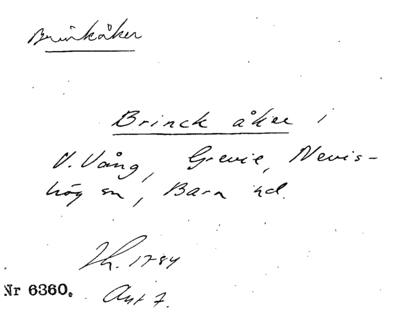 Brinkåker
Brinck åker i
V. Vång, Grevie, Nevis-
hög sn, Bara hd.
Lh. 1784
Akt 7.
Nr 6360.